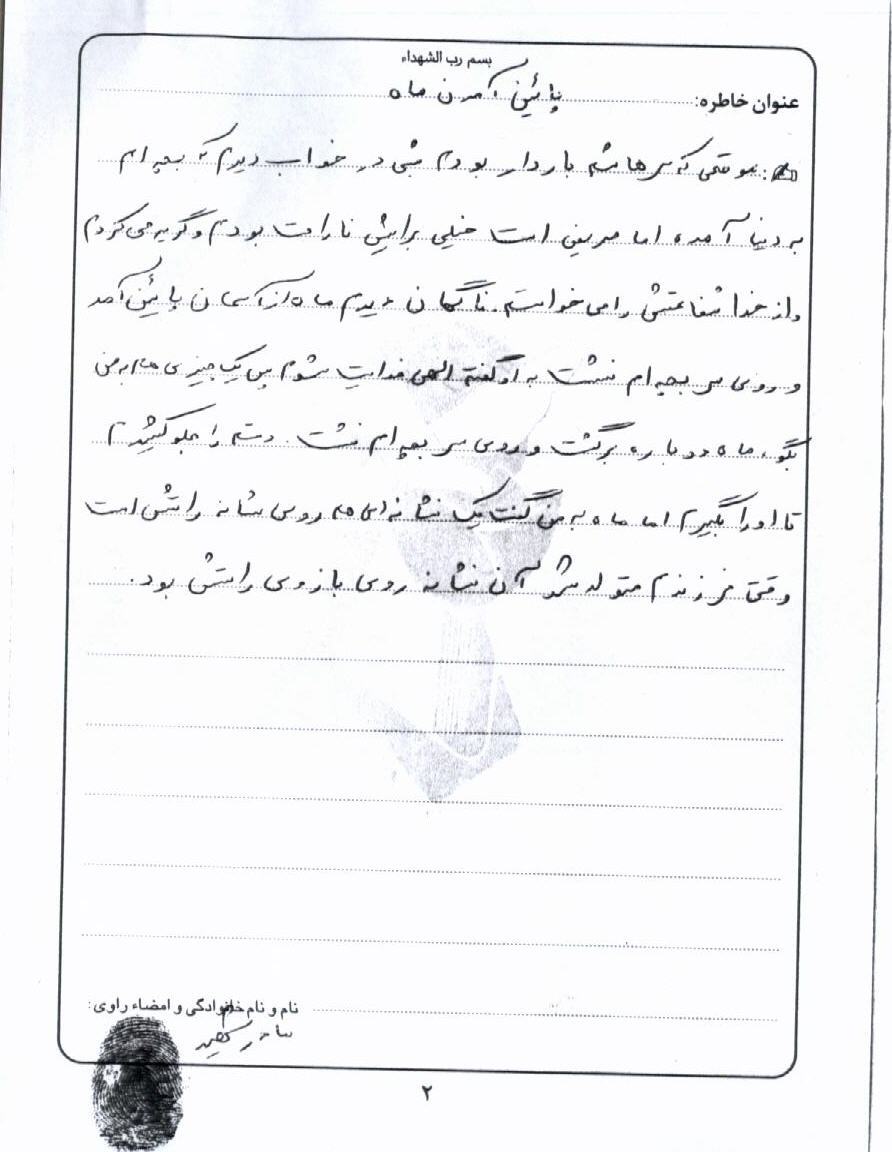 بسم رب الشهداء
عنوان خاطره: پائین آمدن ماه
موقعی که سر هاشم باردار بودم شبی در خواب دیدم که بچه ام
به دنیا آمده اما مریض است خیلی برایش ناراحت بودم و گریه می کردم
و از خدا شفاعتش را می خواستم. ناگهان دیدم ماه از آسمان پائین آمد
و روی سر بچه ام نشست به او گفتم الهی فدایت شوم پس یک چیزی هم به من
بگو. ماه دوباره برگشت و روی سر بچه ام نشست. دستم را جلو کشیدم
تا او را بگیرم اما ماه به من گفت یک نشانه ای هم روی شانه راستش است
وقتی فرزندم متولد شد آن نشانه روی بازوی راستش بود.
نام و نام خانوادگی و امضاء راوی:
مادر شهید
۲